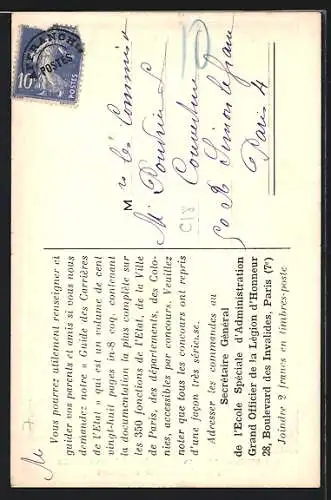 AFFRANCHts
POSTES
10
POSTES
M rs les Commis
Couverture
C18
50 R Simon lefranc
Paris 4
M
Vous pourrez utilement renseigner et
guider vos parents et amis si vous nous
demandez notre « Guide des Carrières
de l'Etat » qui est un volume de cent
vingt-huit pages in-8 coq. contenant
la documentation la plus complète sur
les 350 fonctions de l'Etat, de la Ville
de Paris, des départements, des Colo-
nies, accessibles par concours. Veuillez
noter que tous les concours ont repris
d'une façon très sérieuse.
Adresser les commandes au
Secrétaire Général
de l'Ecole Spéciale d'Administration
Grand Officier de la Légion d'Honneur
28, Boulevard des Invalides, Paris (7e)
Joindre 2 francs en timbres-poste